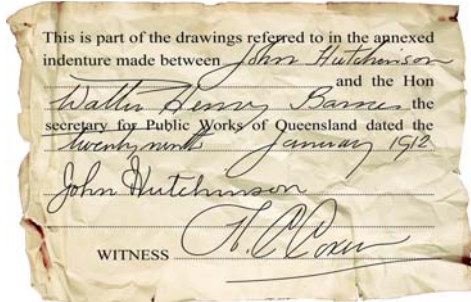 This is part of the drawings referred to in the annexed
indenture made between John Hutchinson
and the Hon
Walter Henry Barnes the
secretary for Public Works of Queensland dated the
twenty ninth January 1912
John Hutchinson
WITNESS H. C. Coxen